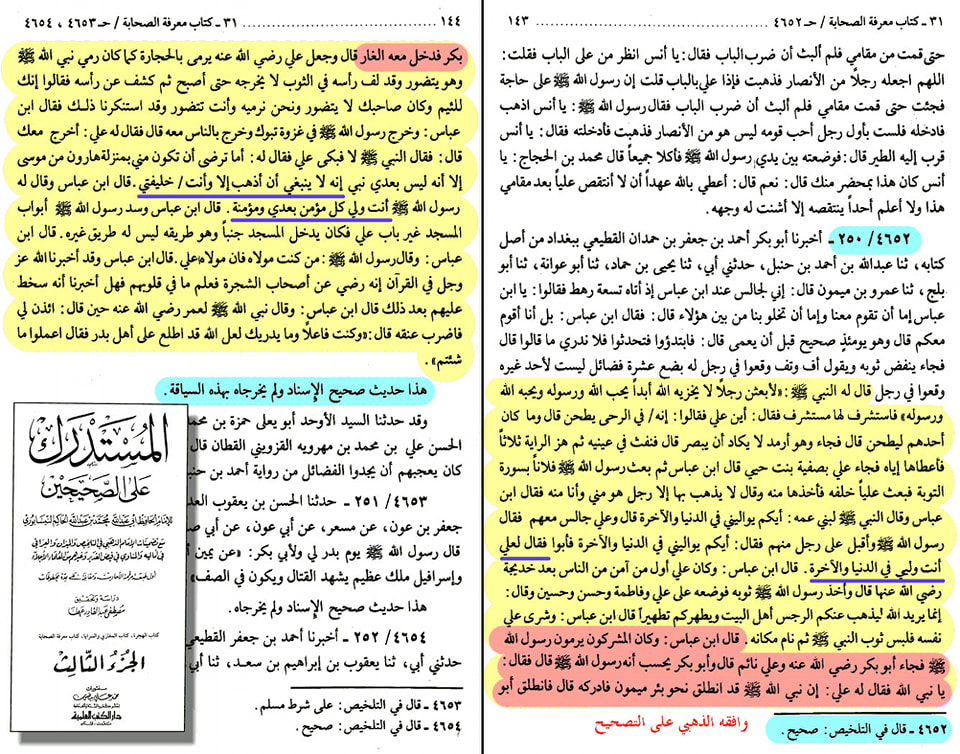 ٣١ - كتاب معرفة الصحابة / حـ ٤٦٥٢ ١٤٣
حتى قمت من مقامي فلم ألبث أن ضرب الباب فقال: يا أنس انظر من على الباب فقلت:
اللهم اجعله رجلًا من الأنصار فذهبت فإذا علي بالباب قلت إن رسول الله ﷺ على حاجة
فجئت حتى قمت مقامي فلم ألبث أن ضرب الباب فقال رسول الله ﷺ: يا أنس اذهب
فادخله فلست بأول رجل أحب قومه ليس هو من الأنصار فذهبت فأدخلته فقال: يا أنس
قرب إليه الطير قال: فوضعته بين يدي رسول الله ﷺ فأكلا جميعاً قال محمد بن الحجاج: يا
أنس كان هذا بمحضر منك قال: نعم قال: أعطي بالله عهداً أن لا أنتقص علياً بعد مقامي
هذا ولا أعلم أحداً ينتقصه إلا أشنت له وجهه.
٤٦٥٢/ ٢٥٠ - أخبرنا أبو بكر أحمد بن جعفر بن حمدان القطيعي ببغداد من أصل
كتابه، ثنا عبدالله بن أحمد بن حنبل، حدثني أبي، ثنا يحيى بن حماد، ثنا أبو عوانة، ثنا أبو
بلج، ثنا عمرو بن ميمون قال: إني لجالس عند ابن عباس إذ أتاه تسعة رهط فقالوا: يا ابن
عباس إما أن تقوم معنا وإما أن تخلو بنا من بين هؤلاء قال: فقال ابن عباس: بل أنا أقوم
معكم قال وهو يومئذٍ صحيح قبل أن يعمى قال: فابتدؤوا فتحدثوا فلا ندري ما قالوا قال
فجاء ينفض ثوبه ويقول أف وتف وقعوا في رجل له بضع عشرة فضائل ليست لأحد غيره
وقعوا في رجل قال له النبي ﷺ: «لأبعثن رجلًا لا يخزيه الله أبداً يحب الله ورسوله ويحبه الله
ورسوله» فاستشرف لها مستشرف فقال: أين علي فقالوا: إنه/ في الرحى يطحن قال وما كان
أحدهم ليطحن قال فجاء وهو أرمد لا يكاد أن يبصر قال فنفث في عينيه ثم هز الراية ثلاثاً
فأعطاها إياه فجاء علي بصفية بنت حيي قال ابن عباس ثم بعث رسول الله ﷺ فلاناً بسورة
التوبة فبعث علياً خلفه فأخذها منه وقال لا يذهب بها إلا رجل هو مني وأنا منه فقال ابن
عباس وقال النبي ﷺ لبني عمه: أيكم يواليني في الدنيا والآخرة قال وعلي جالس معهم فقال
رسول الله ﷺ وأقبل على رجل منهم فقال: أيكم يواليني في الدنيا والآخرة فأبوا فقال لعلي
أنت وليي في الدنيا والآخرة. قال ابن عباس: وكان علي أول من آمن من الناس بعد خديجة
رضي الله عنها قال وأخذ رسول الله ﷺ ثوبه فوضعه على علي وفاطمة وحسن وحسين وقال:
إنما يريد الله ليذهب عنكم الرجس أهل البيت ويطهركم تطهيراً قال ابن عباس: وشرى علي
نفسه فلبس ثوب النبي ﷺ ثم نام مكانه. قال ابن عباس: وكان المشركون يرمون رسول الله
ﷺ فجاء أبو بكر رضي الله عنه وعلي نائم قال وأبو بكر يحسب أنه رسول الله ﷺ قال فقال:
يا نبي الله فقال له علي: إن نبي الله ﷺ قد انطلق نحو بئر ميمون فادركه قال فانطلق أبو
٤٦٥٢ - قال في التلخيص: صحيح.
وافقه الذهبي على التصحيح
١٤٤ ٣١ - كتاب معرفة الصحابة / حـ ٤٦٥٣ ، ٤٦٥٤
بكر فدخل معه الغار قال وجعل علي رضي الله عنه يرمى بالحجارة كما كان رمي نبي الله ﷺ
وهو يتضور وقد لف رأسه في الثوب لا يخرجه حتى أصبح ثم كشف عن رأسه فقالوا إنك
للئيم وكان صاحبك لا يتضور ونحن نرميه وأنت تتضور وقد استنكرنا ذلك فقال ابن
عباس: وخرج رسول الله ﷺ في غزوة تبوك وخرج بالناس معه قال فقال له علي: أخرج معك
قال: فقال النبي ﷺ لا فبكى علي فقال له: أما ترضى أن تكون مني بمنزلة هارون من موسى
إلا أنه ليس بعدي نبي إنه لا ينبغي أن أذهب إلا وأنت/ خليفتي. قال ابن عباس وقال له
رسول الله ﷺ أنت ولي كل مؤمن بعدي ومؤمنة. قال ابن عباس وسد رسول الله ﷺ أبواب
المسجد غير باب علي فكان يدخل المسجد جنباً وهو طريقه ليس له طريق غيره. قال ابن
عباس: وقال رسول الله ﷺ: من كنت مولاه فان مولاه علي. قال ابن عباس وقد أخبرنا الله عز
وجل في القرآن إنه رضي عن أصحاب الشجرة فعلم ما في قلوبهم فهل أخبرنا أنه سخط
عليهم بعد ذلك قال ابن عباس: وقال نبي الله ﷺ لعمر رضي الله عنه حين قال: ائذن لي
فاضرب عنقه قال: «وكنت فاعلًا وما يدريك لعل الله قد اطلع على أهل بدر فقال اعملوا ما
شئتم».
هذا حديث صحيح الإسناد ولم يخرجاه بهذه السياقة.
وقد حدثنا السيد الأوحد أبو يعلى حمزة بن محمد
الحسن علي بن محمد بن مهرويه القزويني القطان قال
كان يعجبهم أن يجدوا الفضائل من رواية أحمد بن حن
٤٦٥٣/ ٢٥١ - حدثنا الحسن بن يعقوب العد
جعفر بن عون، عن مسعر، عن أبي عون، عن أبي ص
قال رسول الله ﷺ يوم بدر لي ولأبي بكر: «عن يمين أ
وإسرافيل ملك عظيم يشهد القتال ويكون في الصف»
هذا حديث صحيح الإسناد ولم يخرجاه.
٤٦٥٤/ ٢٥٢ - أخبرنا أحمد بن جعفر القطيعي
حدثني أبي، ثنا يعقوب بن إبراهيم بن سعد، ثنا أبي
٤٦٥٣ - قال في التلخيص: على شرط مسلم.
٤٦٥٤ - قال في التلخيص: صحيح.
المستدرك
على الصحيحين
للإمام الحافظ أبي عبد الله محمد بن عبد الله الحاكم النيسابوري
دراسة وتحقيق
مصطفى عبد القادر عطا
كتاب الهجرة، كتاب المغازي والسرايا، كتاب معرفة الصحابة
الجزء الثالث
دار الكتب العلمية